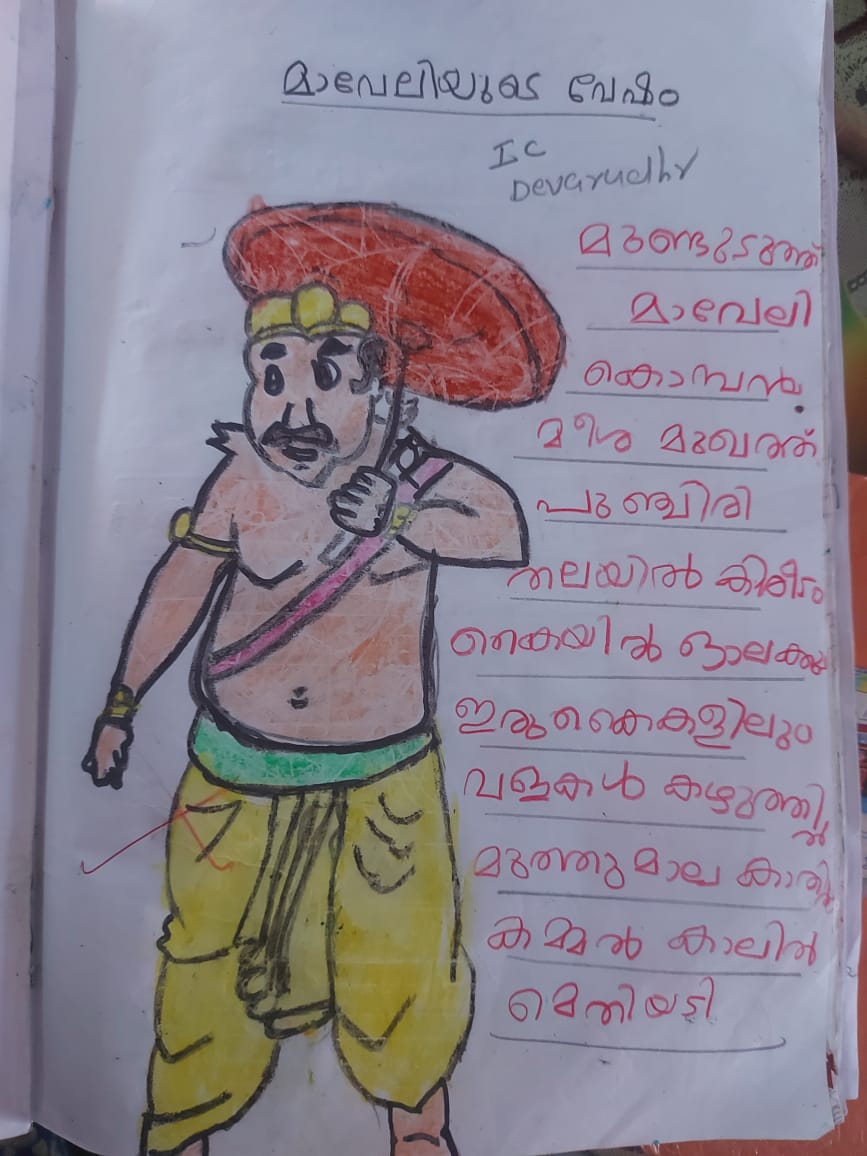 മാവേലിയുടെ വേഷം
I C
Devarudhr
മുണ്ടുടുത്ത്
മാവേലി
കൊമ്പൻ
മീശ മുഖത്ത്
പുഞ്ചിരി
തലയിൽ കിരീടം
കൈയിൽ ഓലക്കു
ഇരുകൈകളിലും
വളകൾ കഴുത്തിൽ
മുത്തുമാല കാതിൽ
കമ്മൽ കാലിൽ
മെതിയടി